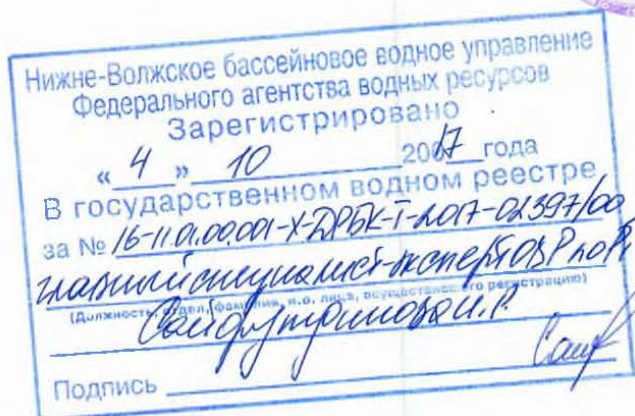 Нижне-Волжское бассейновое водное управление
Федерального агентства водных ресурсов
Зарегистрировано
« 4 » 10 2017 года
в государственном водном реестре
за № 16-11.01.00.001-Х-ДРБК-Т-2017-02397/00
главный специалист-эксперт ОВР по РТ
(должность, отдел, фамилия, и.о. лица, осуществившего регистрацию)
Сайфутдинова И.Р.
Подпись